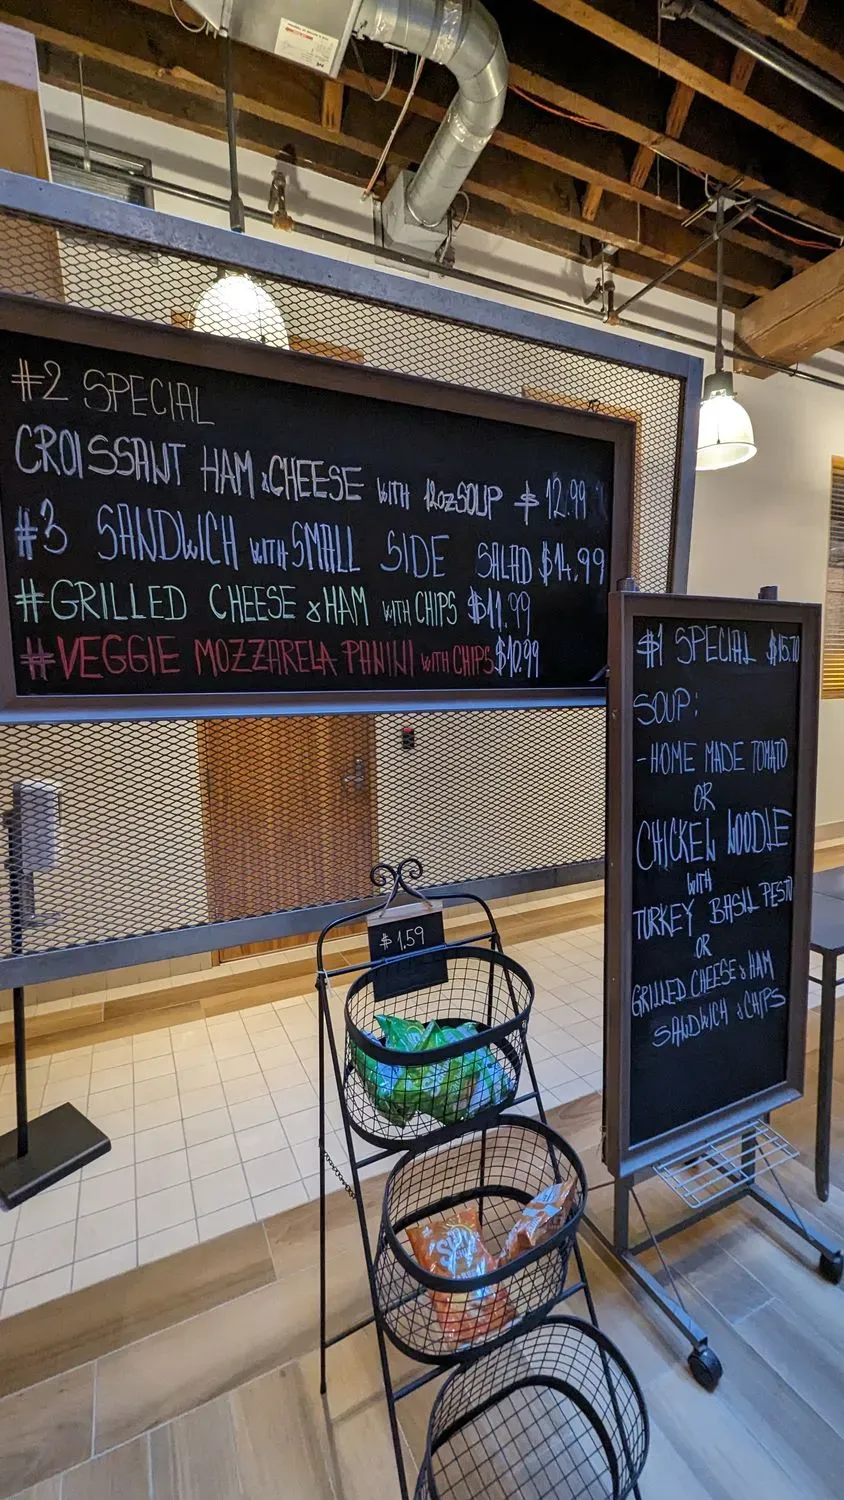 #2 SPECIAL
CROISSANT HAM & CHEESE WITH 12oz SOUP $ 12.99
#3 SANDWICH WITH SMALL SIDE SALAD $14.99
#GRILLED CHEESE & HAM WITH CHIPS $11.99
#VEGGIE MOZZARELA PANINI WITH CHIPS $10.99
#1 SPECIAL $15.70
SOUP:
-HOME MADE TOMATO
OR
CHICKEN NOODLE
WITH
TURKEY BASIL PESTO
OR
GRILLED CHEESE & HAM
SANDWICH & CHIPS
$1.59